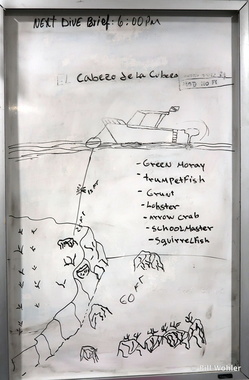 NEXT Dive Brief: 6:00 PM
Cabezo de la Cubera
- Green Moray
- trumpetfish
- Grunt
- Lobster
- arrow crab
- schoolmaster
- Squirrelfish
60 FT
Bill Wohler